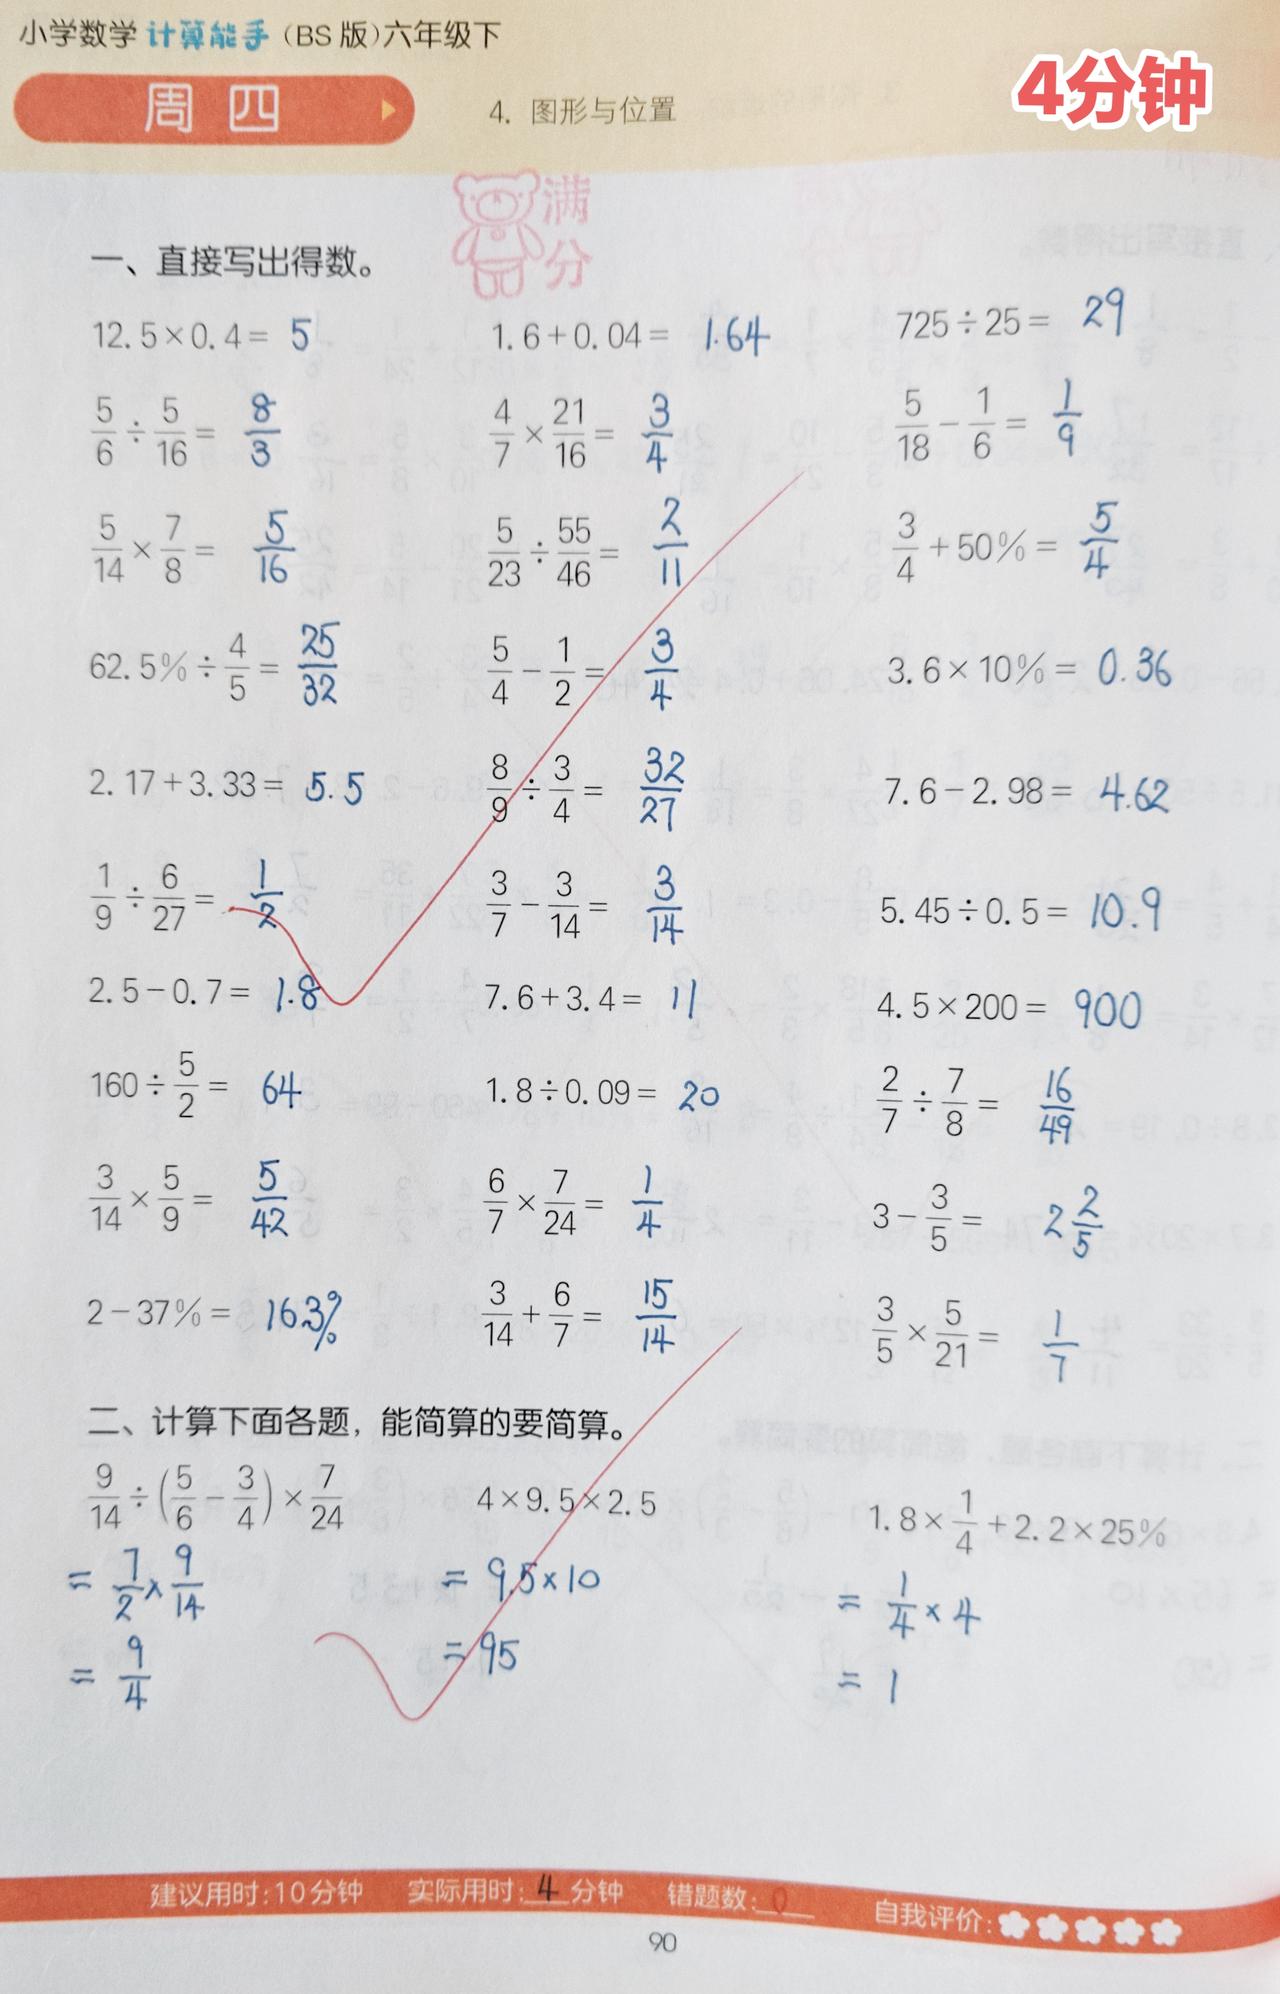 小学数学 计算能手（BS 版）六年级下
4分钟
周四
4. 图形与位置
满分
一、直接写出得数。
12.5×0.4= 5 1.6+0.04= 1.64 725÷25= 29
5/6÷5/16= 8/3 4/7×21/16= 3/4 5/18-1/6= 1/9
5/14×7/8= 5/16 5/23÷55/46= 2/11 3/4+50%= 5/4
62.5%÷4/5= 25/32 5/4-1/2= 3/4 3.6×10%= 0.36
2.17+3.33= 5.5 8/9÷3/4= 32/27 7.6-2.98= 4.62
1/9÷6/27= 1/2 3/7-3/14= 3/14 5.45÷0.5= 10.9
2.5-0.7= 1.8 7.6+3.4= 11 4.5×200= 900
160÷5/2= 64 1.8÷0.09= 20 2/7÷7/8= 16/49
3/14×5/9= 5/42 6/7×7/24= 1/4 3-3/5= 2 2/5
2-37%= 163% 3/14+6/7= 15/14 3/5×5/21= 1/7
二、计算下面各题，能简算的要简算。
9/14÷(5/6-3/4)×7/24 4×9.5×2.5 1.8×1/4+2.2×25%
= 7/2×9/14 = 9.5×10 = 1/4×4
= 9/4 = 95 = 1
建议用时:10分钟 实际用时:4分钟 错题数:0 自我评价:
90